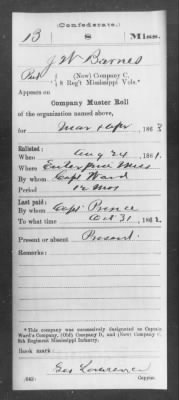 (Confederate.)
B 8 Miss.
J W Barnes
Pvt., { (New) Company C,
8 Reg't Mississippi Vols.*
Appears on
Company Muster Roll
of the organization named above,
for Mar & Apr, 1863
Enlisted:
When Aug 24, 1861.
Where Enterprise Miss
By whom Capt Ward
Period 12 Mos
Last paid:
By whom Capt Prince
To what time Oct 31, 1862.
Present or absent Present
Remarks:
*This company was successively designated as Captain
Ward's Company, (Old) Company D, and (New) Company C,
8th Regiment Mississippi Infantry.
Book mark:
(642) Geo Lawrence
Copyist.